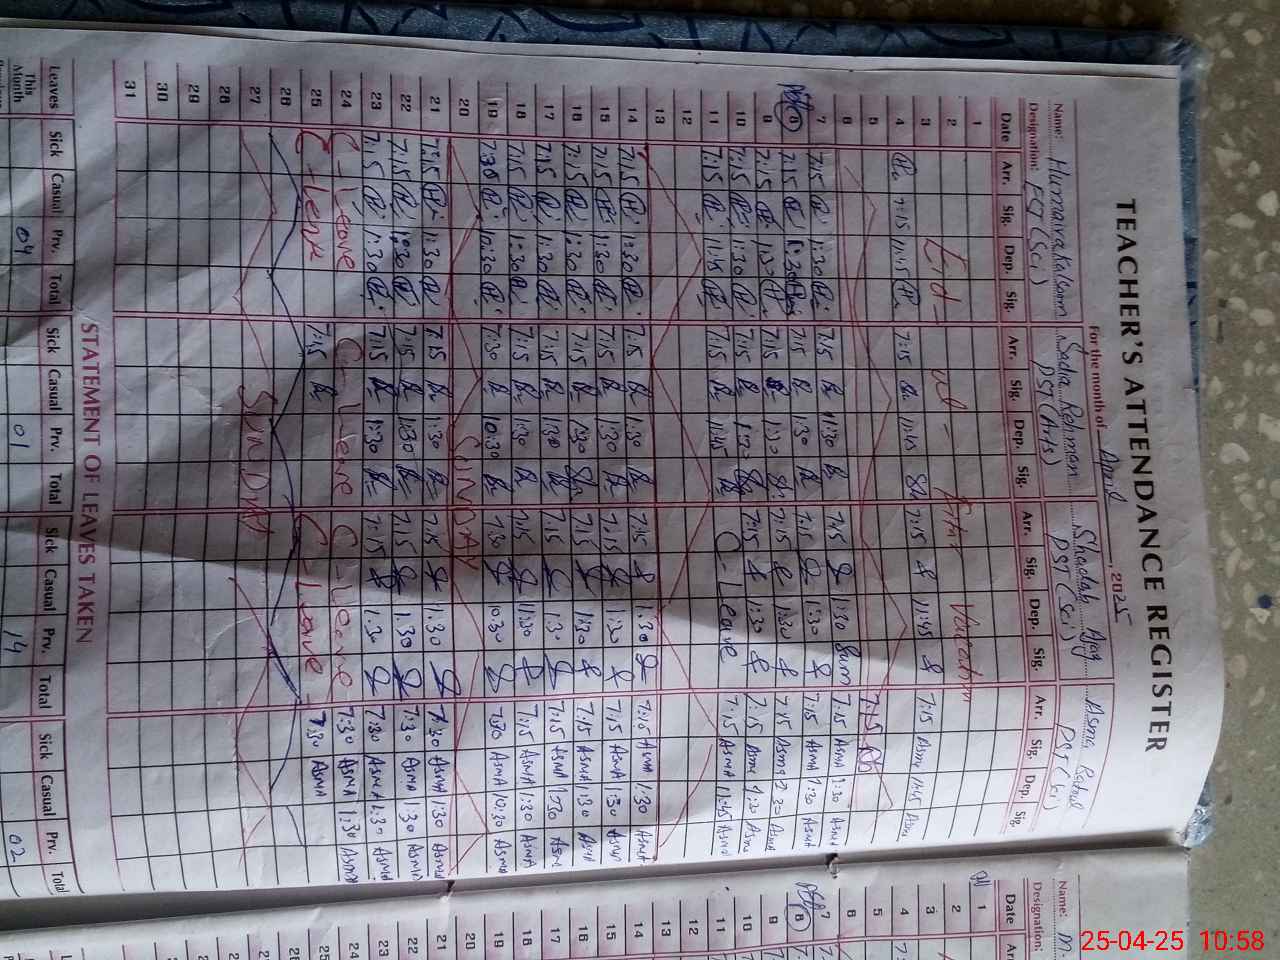 TEACHER'S ATTENDANCE REGISTER
For the month of April, 2025
Name: Humaira Kalsoom Sadia Rehman Shadab Ajaz Asma
Designation: PST (Sci) PST (Arts) PST (Sci) PST (Sci)
Date Arr. Sig. Dep. Sig. Arr. Sig. Dep. Sig. Arr. Sig. Dep. Sig. Arr. Sig. Dep. Sig.
1
2 Eid - ul - Fitr
3
4 7:15 11:45 7:15 11:45 7:15 11:45 7:15 Asma 11:45 Asma
5 7:15
6
7 7:15 1:30 7:15 1:30 7:15 1:30 7:15 ASMA 1:30 ASMA
8 7:15 1:30 7:15 1:30 7:15 1:30 7:15 ASMA 1:30 ASMA
9 7:15 1:30 7:15 1:30 7:15 1:30 7:15 Asma
10 7:15 1:30 7:15 1:30 7:15 1:30 7:15 Asma 1:30 Asma
11 7:15 11:45 7:15 11:45 C-Leave 7:15 ASMA 11:45 ASMA
12
13
14 7:15 1:30 7:15 1:30 7:15 1:30 7:15 ASMA 1:30 ASMA
15 7:15 1:30 7:15 1:30 7:15 1:30 7:15 ASMA 1:30 ASMA
16 7:15 1:30 7:15 1:30 7:15 1:30 7:15 ASMA 1:30 ASMA
17 7:15 1:30 7:15 1:30 7:15 1:30 7:15 ASMA 1:30 ASM
18 7:15 1:30 7:15 1:30 7:15 1:30 7:15 ASMA 1:30 ASMA
19 7:30 10:30 7:30 10:30 7:30 10:30 7:30 ASMA 10:30 ASMA
20 SUNDAY
21 7:15 1:30 7:15 1:30 7:15 1:30 7:30 ASMA 1:30 ASMA
22 7:15 1:30 7:15 1:30 7:15 1:30 7:30 ASMA 1:30 ASMA
23 7:15 1:30 7:15 1:30 7:15 1:30 7:30 ASMA 1:30 ASMA
24 C-Leave C-Leave C-Leave 7:30 ASMA 1:30 ASMA
25 7:15 C-Leave 7:30 ASMA
26
27 SUNDAY
28
29
30
31
STATEMENT OF LEAVES TAKEN
Leaves Sick Casual Prv. Total Sick Casual Prv. Total Sick Casual Prv. Total Sick Casual Prv. Total
This Month 04 01 14 02
Name: M.
Designation:
Date Arr.
1
2
3
4
5
6
7
8
9
10
11
12
13
14
15
16
17
18
19
20
21
22
23
24
25
26
25-04-25 10:58